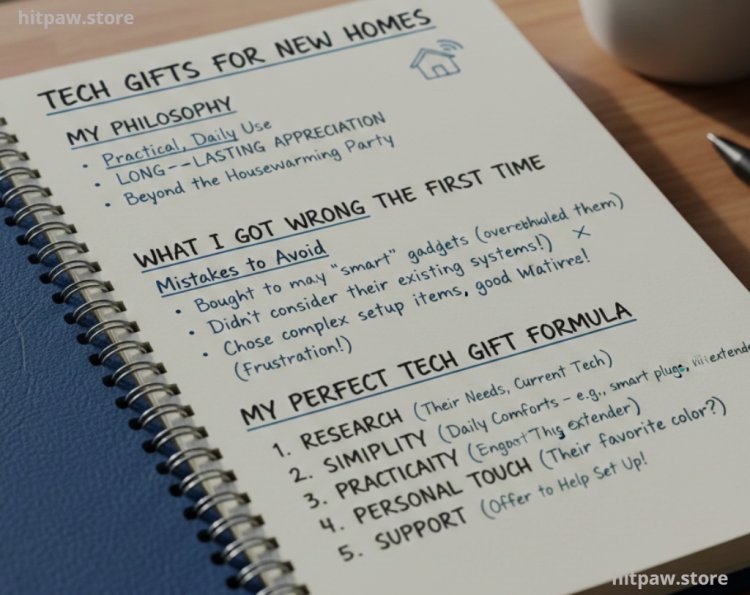 hitpaw.store
TECH GIFTS FOR NEW HOMES
MY PHILOSOPHY
• Practical, Daily Use
• LONG--LASTING APPRECIATION
• Beyond the Housewarming Party
WHAT I GOT WRONG THE FIRST TIME
Mistakes to Avoid
• Bought to may "smart" gadgets (them)
• Didn't consider their existing systems!) ×
• Chose complex setup items, good
(Frustration!)
MY PERFECT TECH GIFT FORMULA
1. RESEARCH (Their Needs, Current Tech)
2. SIMIPLITY (Daily Comforts – e.g., smart plugs, extende
3. PRACTICAITY (extender)
4. PERSONAL TOUCH (Their favorite color?)
5. SUPPORT (Offer to Help Set Up!
hitpaw.store